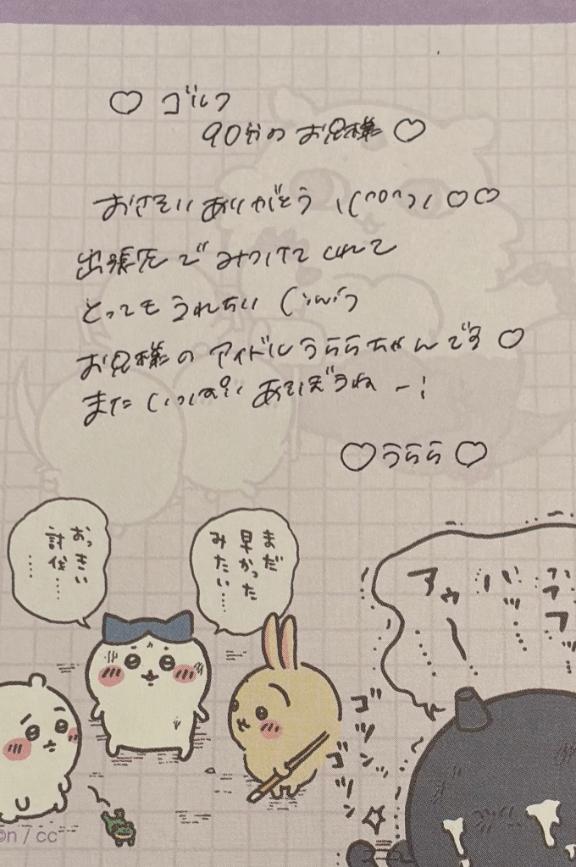 ♡ ゴルフ
90分の お兄様 ♡
おさそい ありがとう \(^o^)/ ♡♡
出張先で みつけてくれて
とっても うれちい (;ω;)
お兄様の アイドル うららちゃんです ♡
また いっぱい あそぼうね ー!
♡ うらら ♡
おっきい
討伐……
まだ
早かった
みたい…
アゥ〜
バッ
ゴシゴシ
n / cc